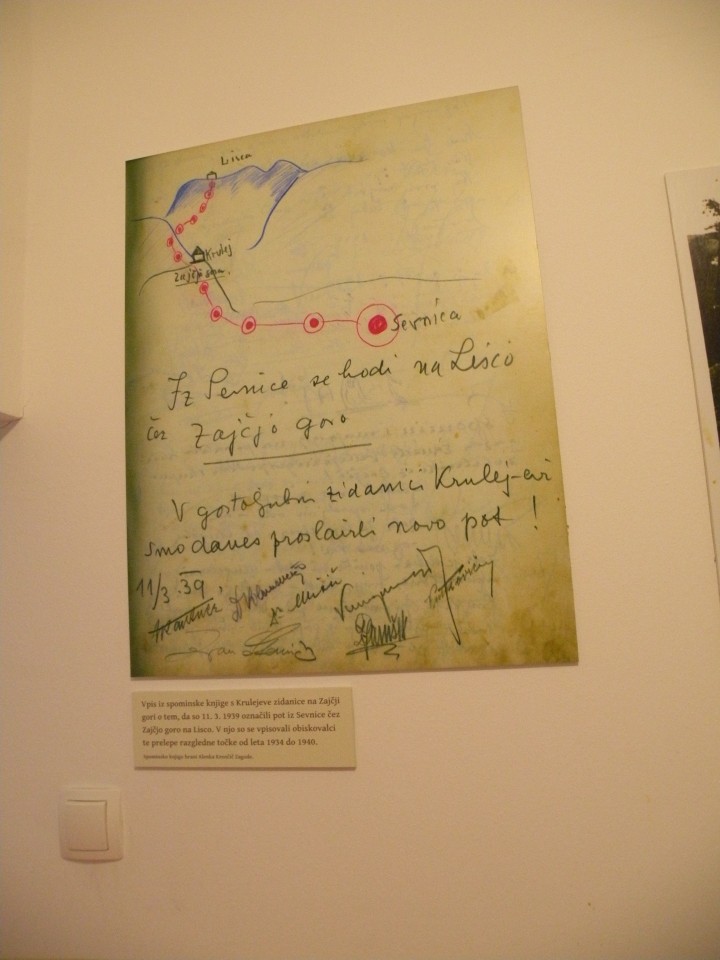 Lisca
Krulej
Zajčja gora.
Sevnica
Iz Sevnice se hodi na Lisco
čez Zajčjo goro
V gostoljubni zidanici Krulej-evi
smo danes proslavili novo pot !
11/3.39
Vpis iz spominske knjige s Krulejeve zidanice na Zajčji
gori o tem, da so 11. 3. 1939 označili pot iz Sevnice čez
Zajčjo goro na Lisco. V njo so se vpisovali obiskovalci
te prelepe razgledne točke od leta 1934 do 1940.
Spominsko knjigo hrani